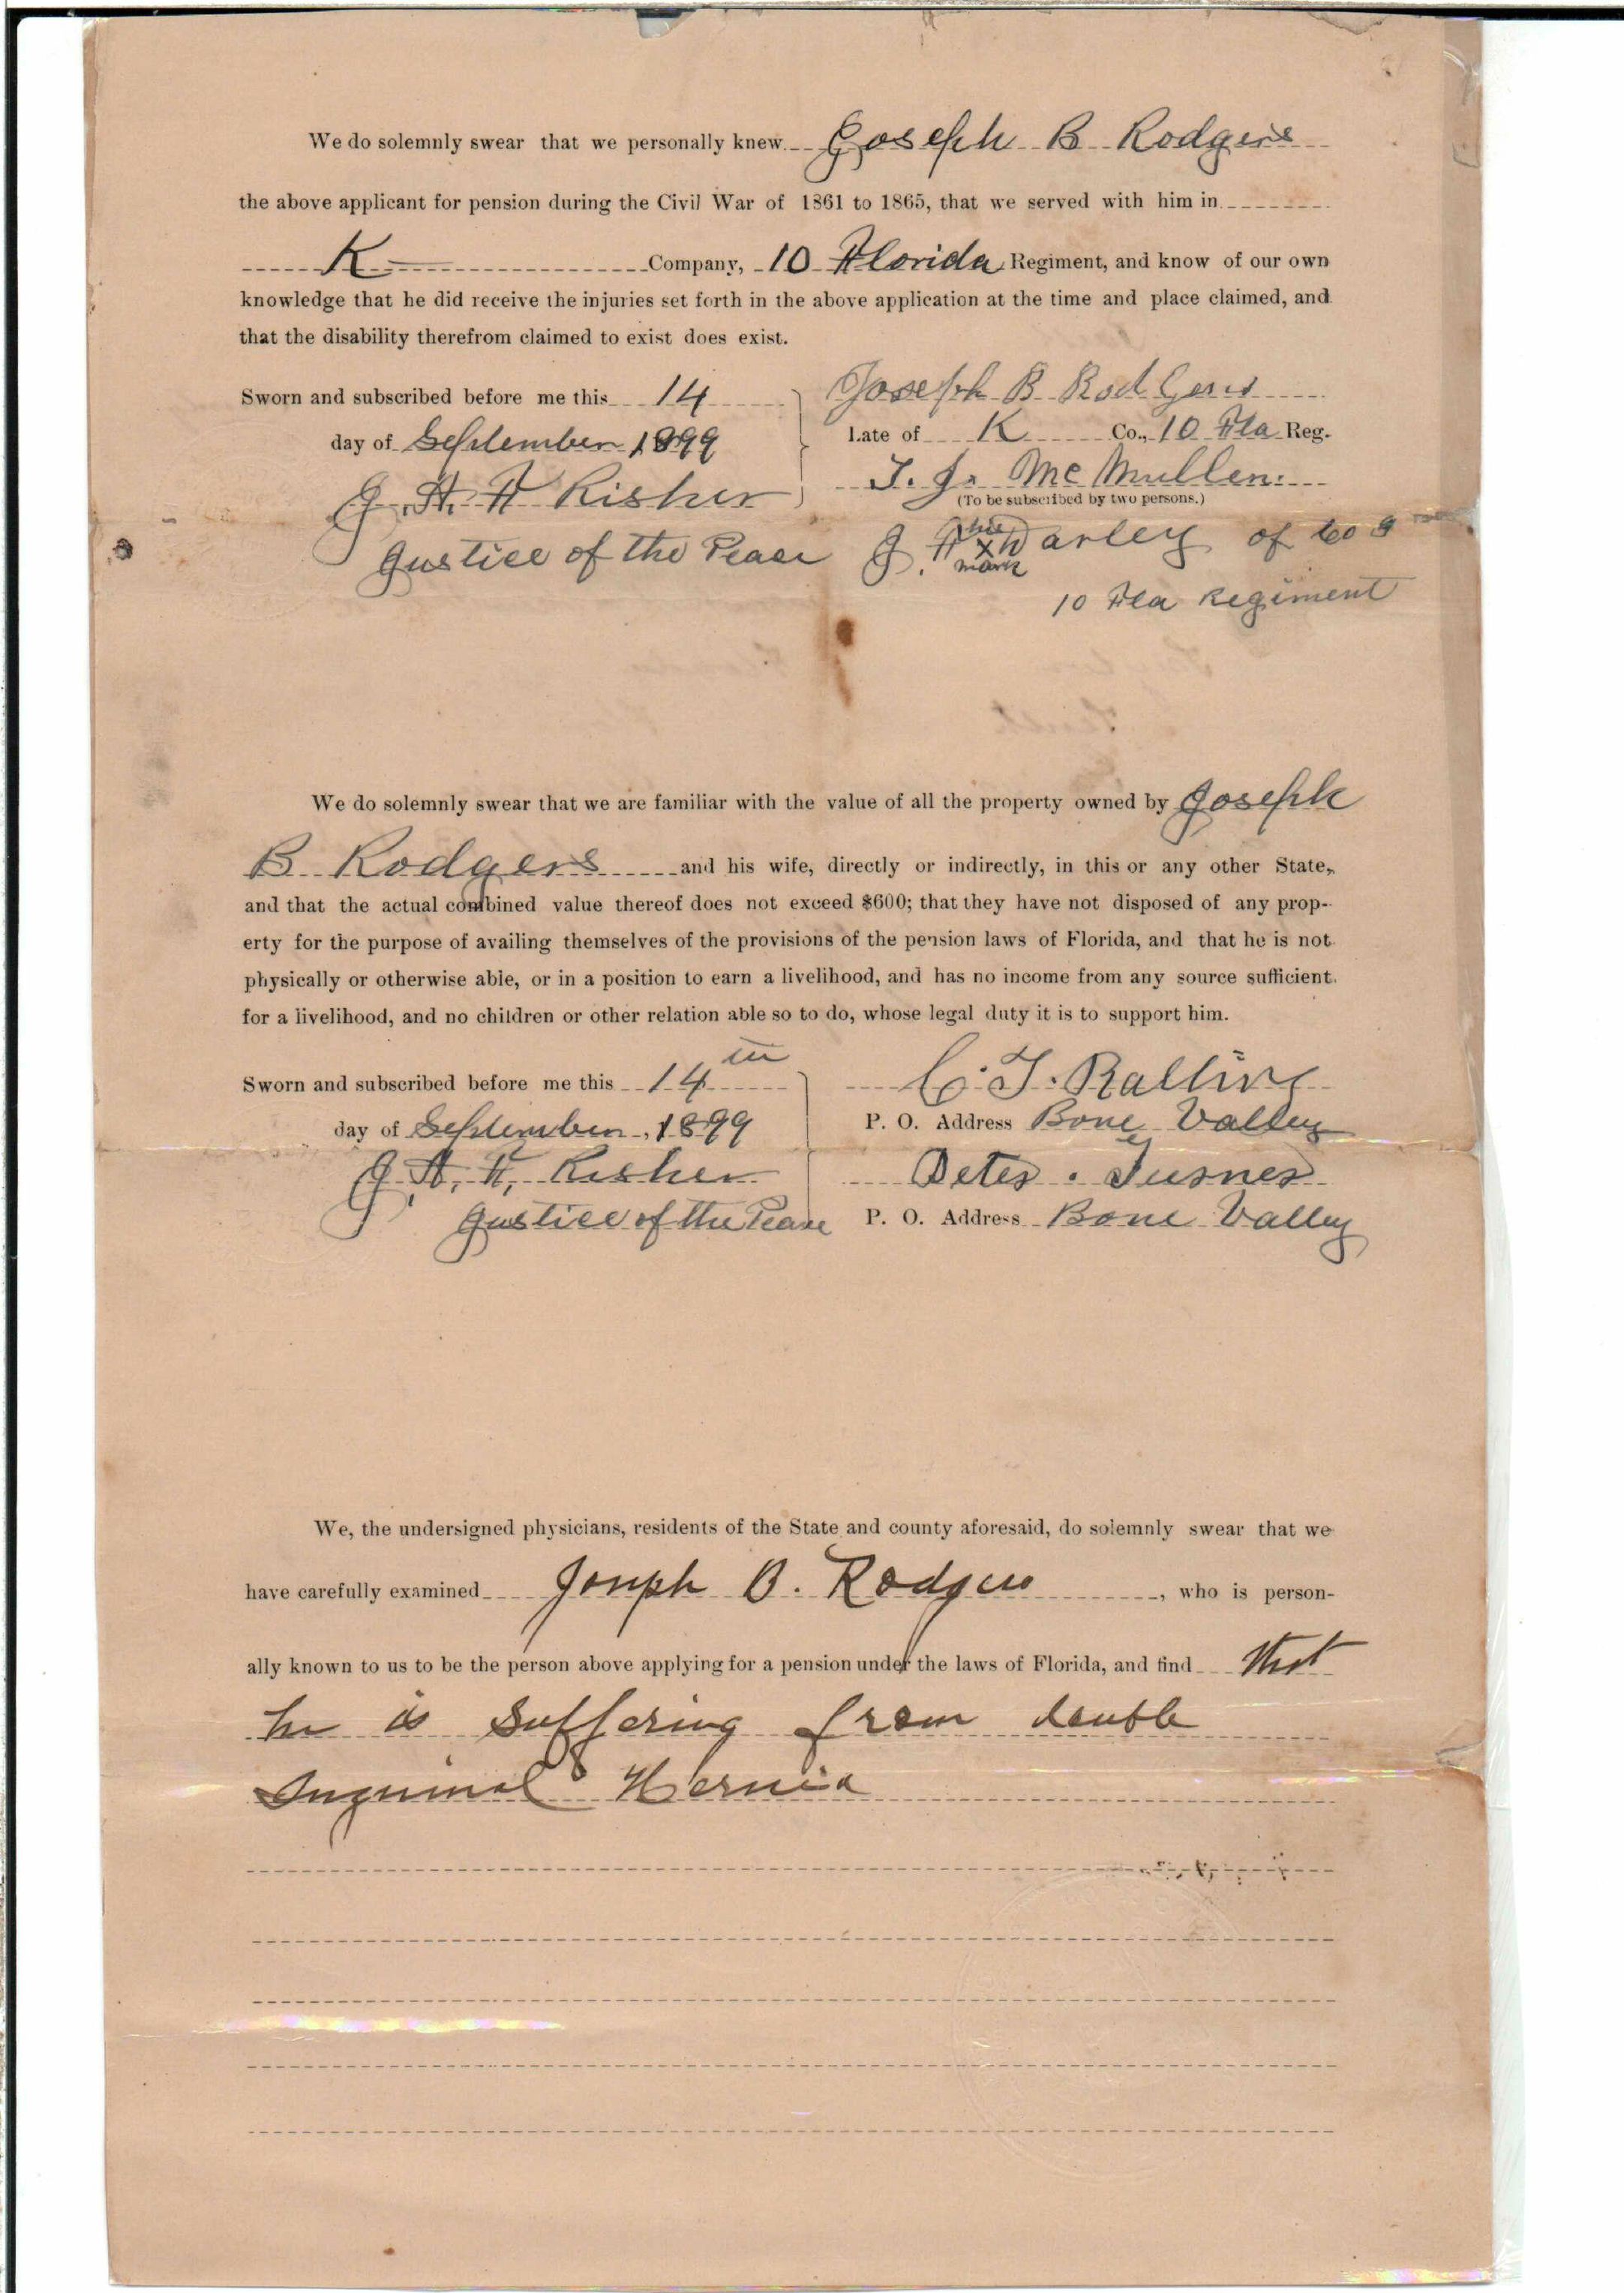 We do solemnly swear that we personally knew Joseph B Rodgers
the above applicant for pension during the Civil War of 1861 to 1865, that we served with him in
K Company, 10 Florida Regiment, and know of our own
knowledge that he did receive the injuries set forth in the above application at the time and place claimed, and
that the disability therefrom claimed to exist does exist.
Sworn and subscribed before me this 14
day of September 1899
J. A. H Risher
Justice of the Peace
Joseph B Rodgers
Late of K Co., 10 Fla Reg.
T. J. McMullen
(To be subscribed by two persons.)
J. his x mark Darley of Co
10 Fla Regiment
We do solemnly swear that we are familiar with the value of all the property owned by Joseph
B Rodgers and his wife, directly or indirectly, in this or any other State,
and that the actual combined value thereof does not exceed $600; that they have not disposed of any prop-
erty for the purpose of availing themselves of the provisions of the pension laws of Florida, and that he is not
physically or otherwise able, or in a position to earn a livelihood, and has no income from any source sufficient
for a livelihood, and no children or other relation able so to do, whose legal duty it is to support him.
Sworn and subscribed before me this 14th
day of September, 1899
J. A. H. Risher
Justice of the Peace
C. T. Rallins
P. O. Address Bone Valley
Peter Turner
P. O. Address Bone Valley
We, the undersigned physicians, residents of the State and county aforesaid, do solemnly swear that we
have carefully examined Joseph B. Rodgers, who is person-
ally known to us to be the person above applying for a pension under the laws of Florida, and find that
he is suffering from double
Inguinal Hernia